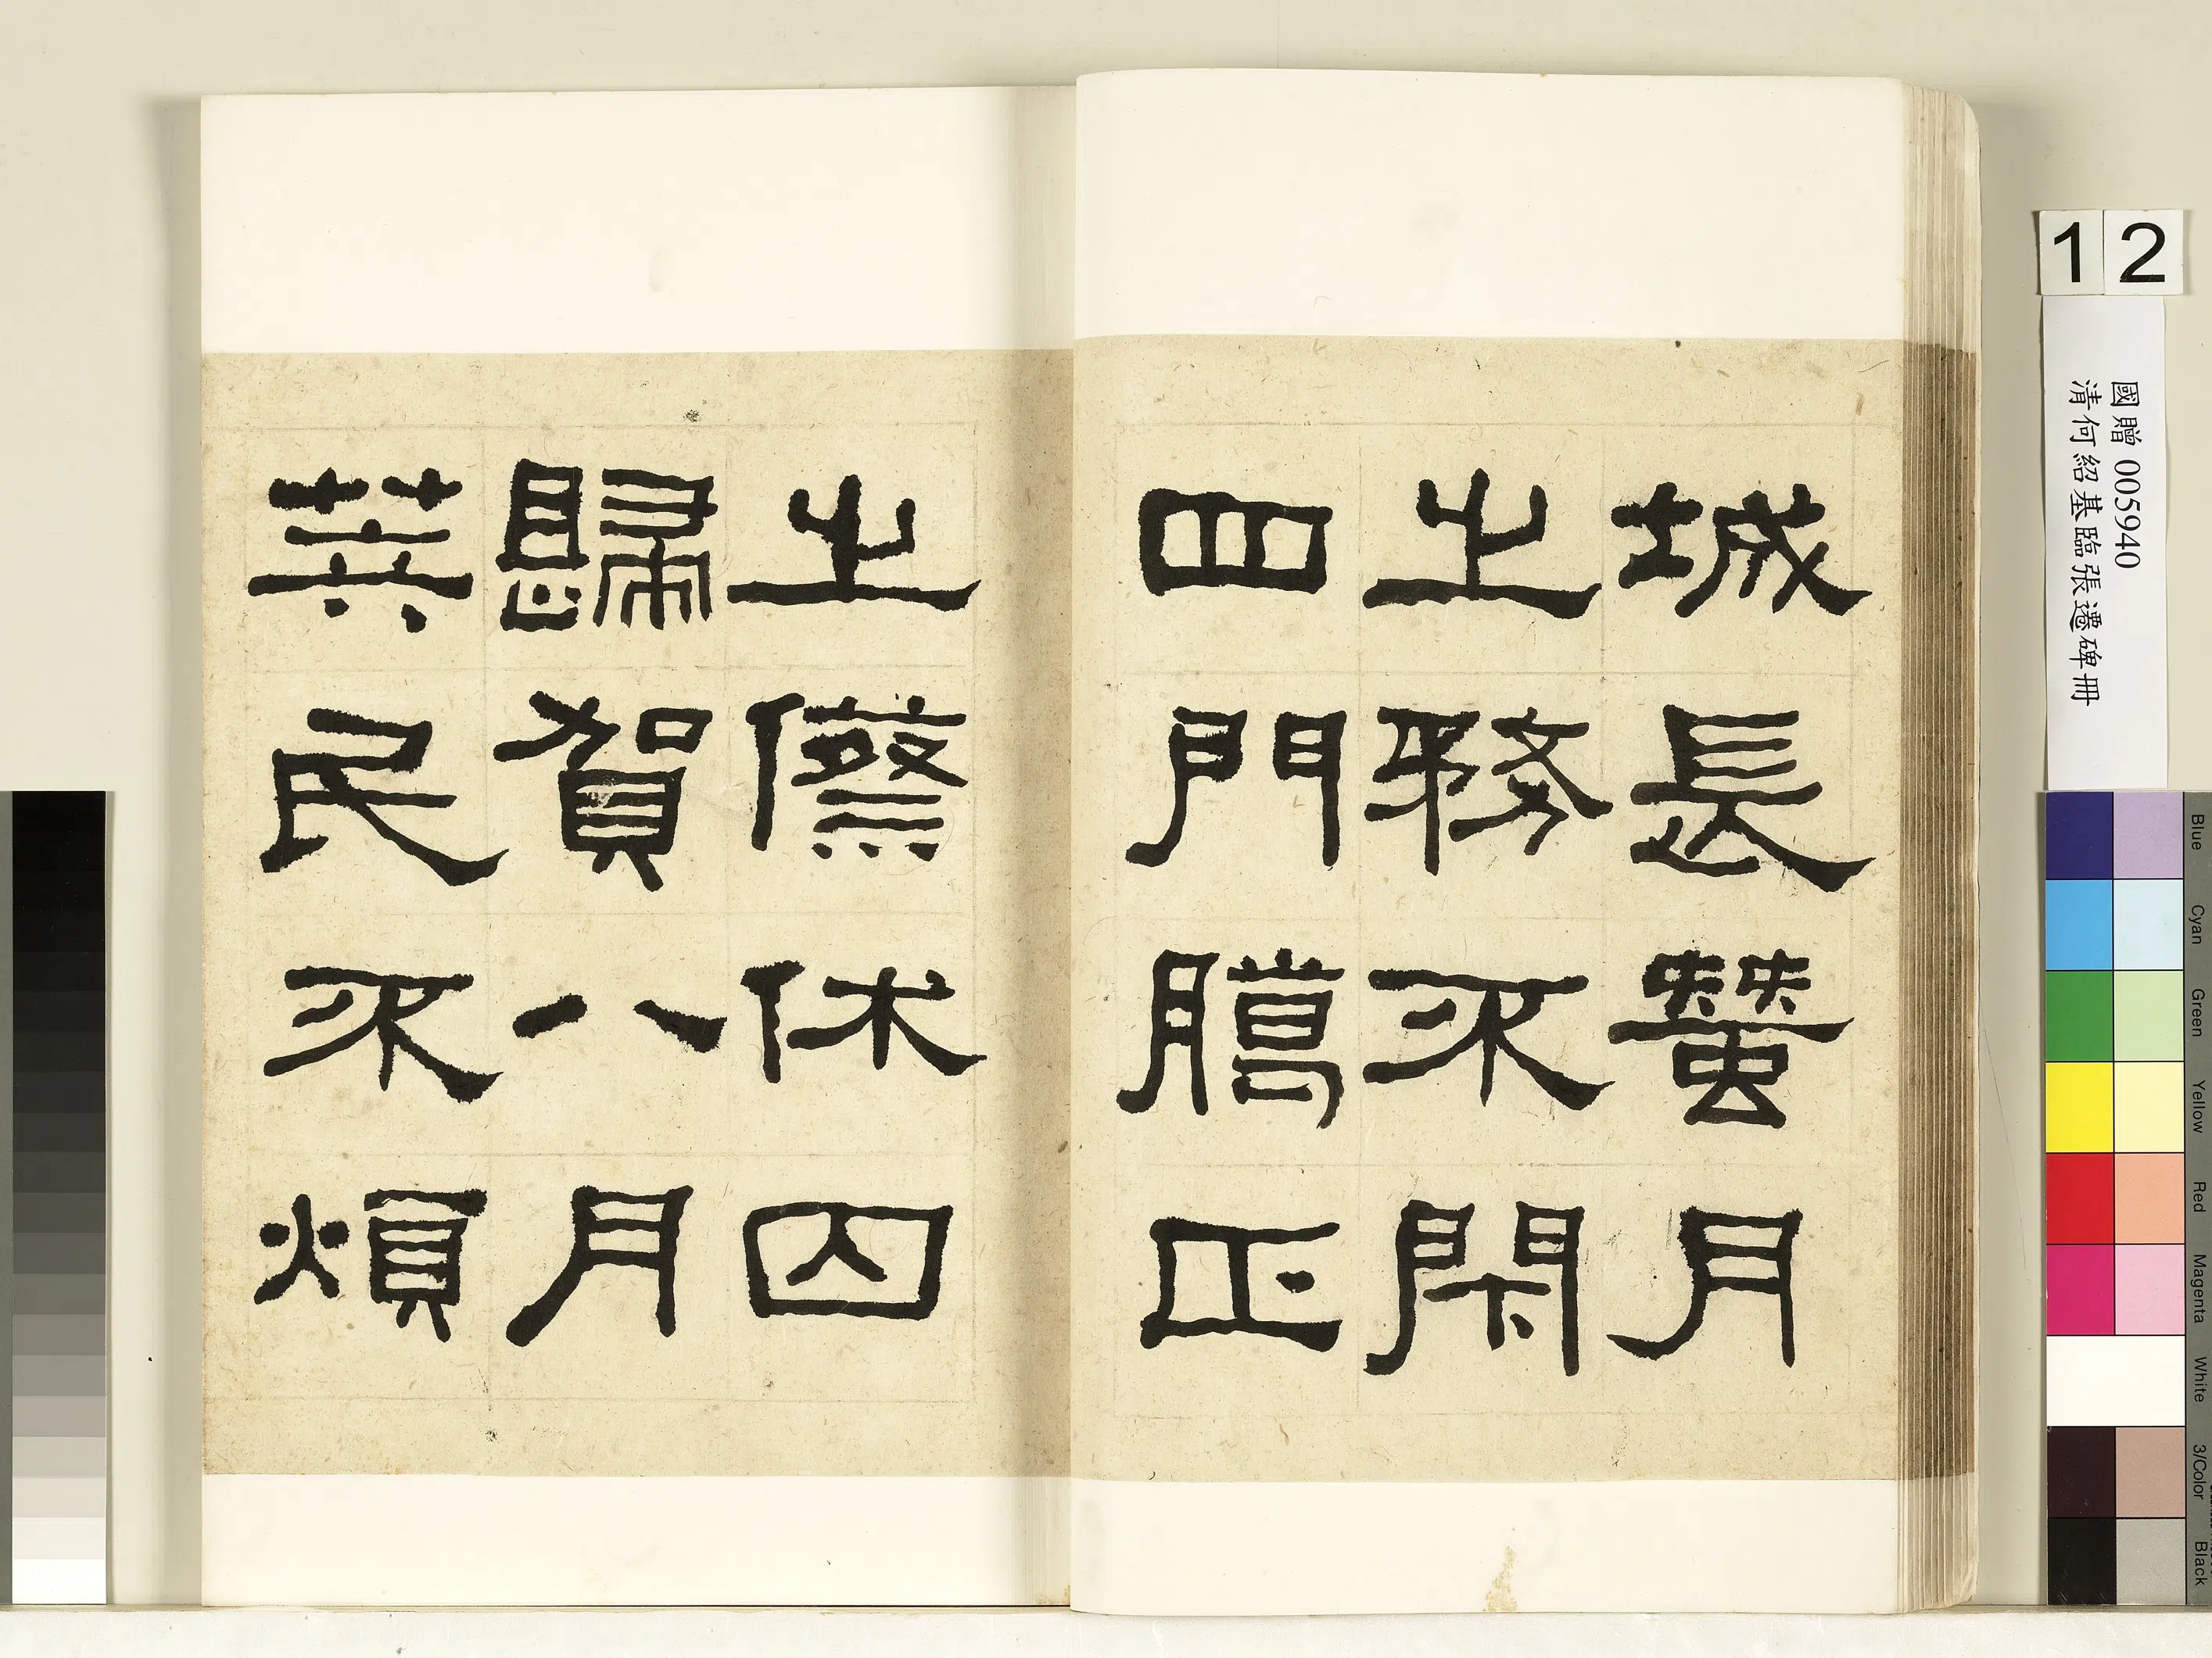 城長蠶月
之務不閇
四門臈正
之祭休囚
歸賀八月
筭民不煩
12
國贈 005940
清何紹基臨張遷碑冊
Blue
Cyan
Green
Yellow
Red
Magenta
White
3/Color
Black